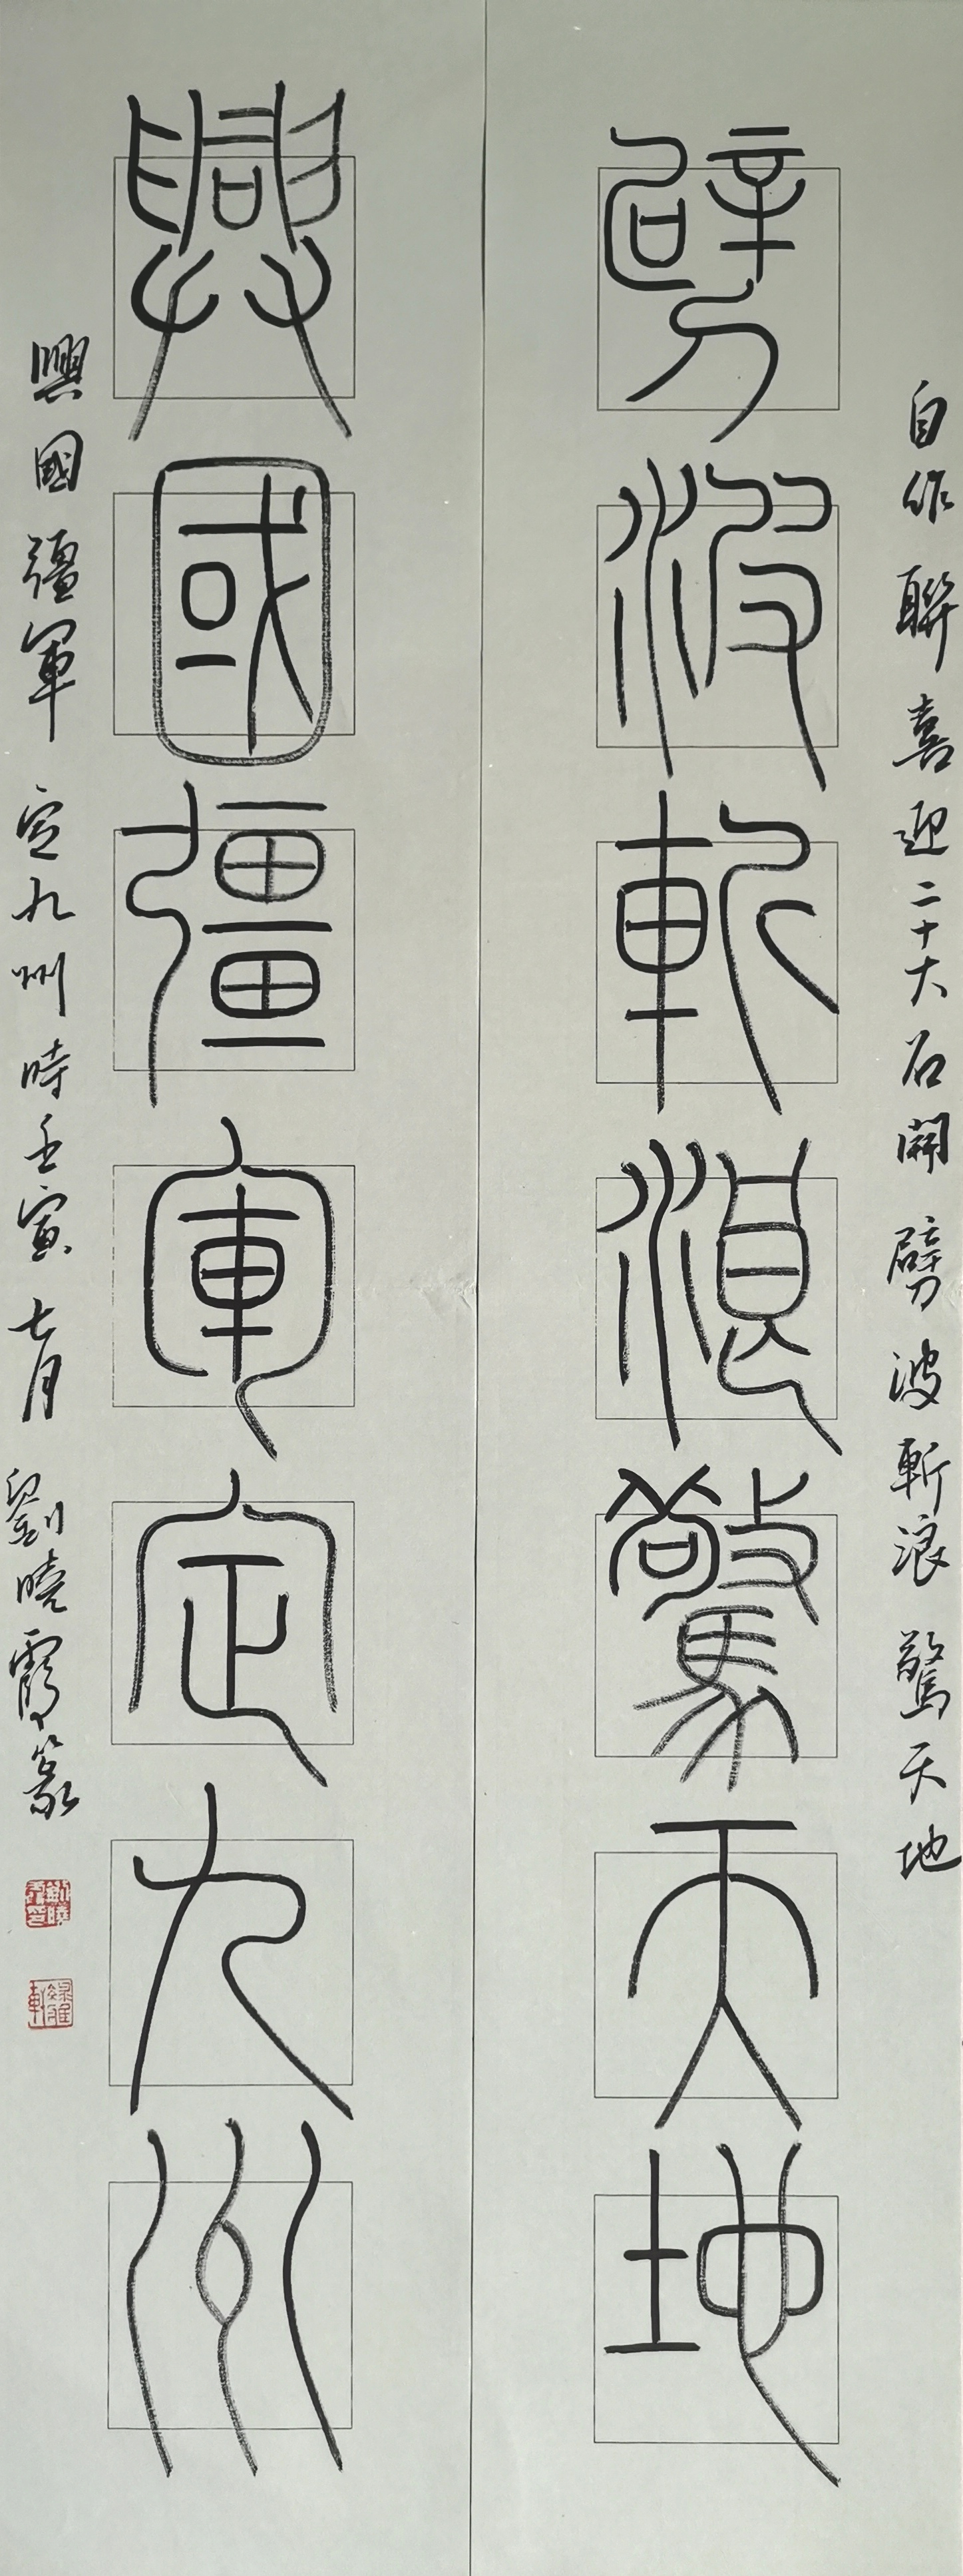 自作聯喜迎二十大石開劈波斬浪驚天地
劈波斬浪驚天地
興國彊軍定九州
興國彊軍定九州時壬寅七月劉曉霞篆